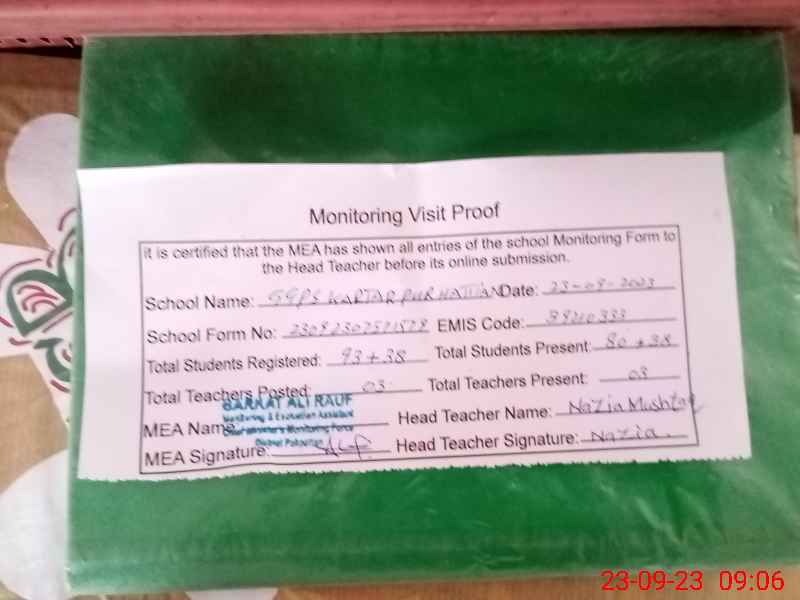 Monitoring Visit Proof
it is certified that the MEA has shown all entries of the school Monitoring Form to
the Head Teacher before its online submission.
School Name: GGPS KARTAR PUR Date: 23-09-2023
School Form No: EMIS Code:
Total Students Registered: 93+38 Total Students Present: 80+38
Total Teachers Posted: 03 Total Teachers Present: 03
BARKAT ALI RAUF
Monitoring & Evaluation Assistant
Chief Minister's Monitoring Force
District Pakpattan
MEA Name: Head Teacher Name: Nazia Mushtaq
MEA Signature: Head Teacher Signature: Nazia.
23-09-23 09:06